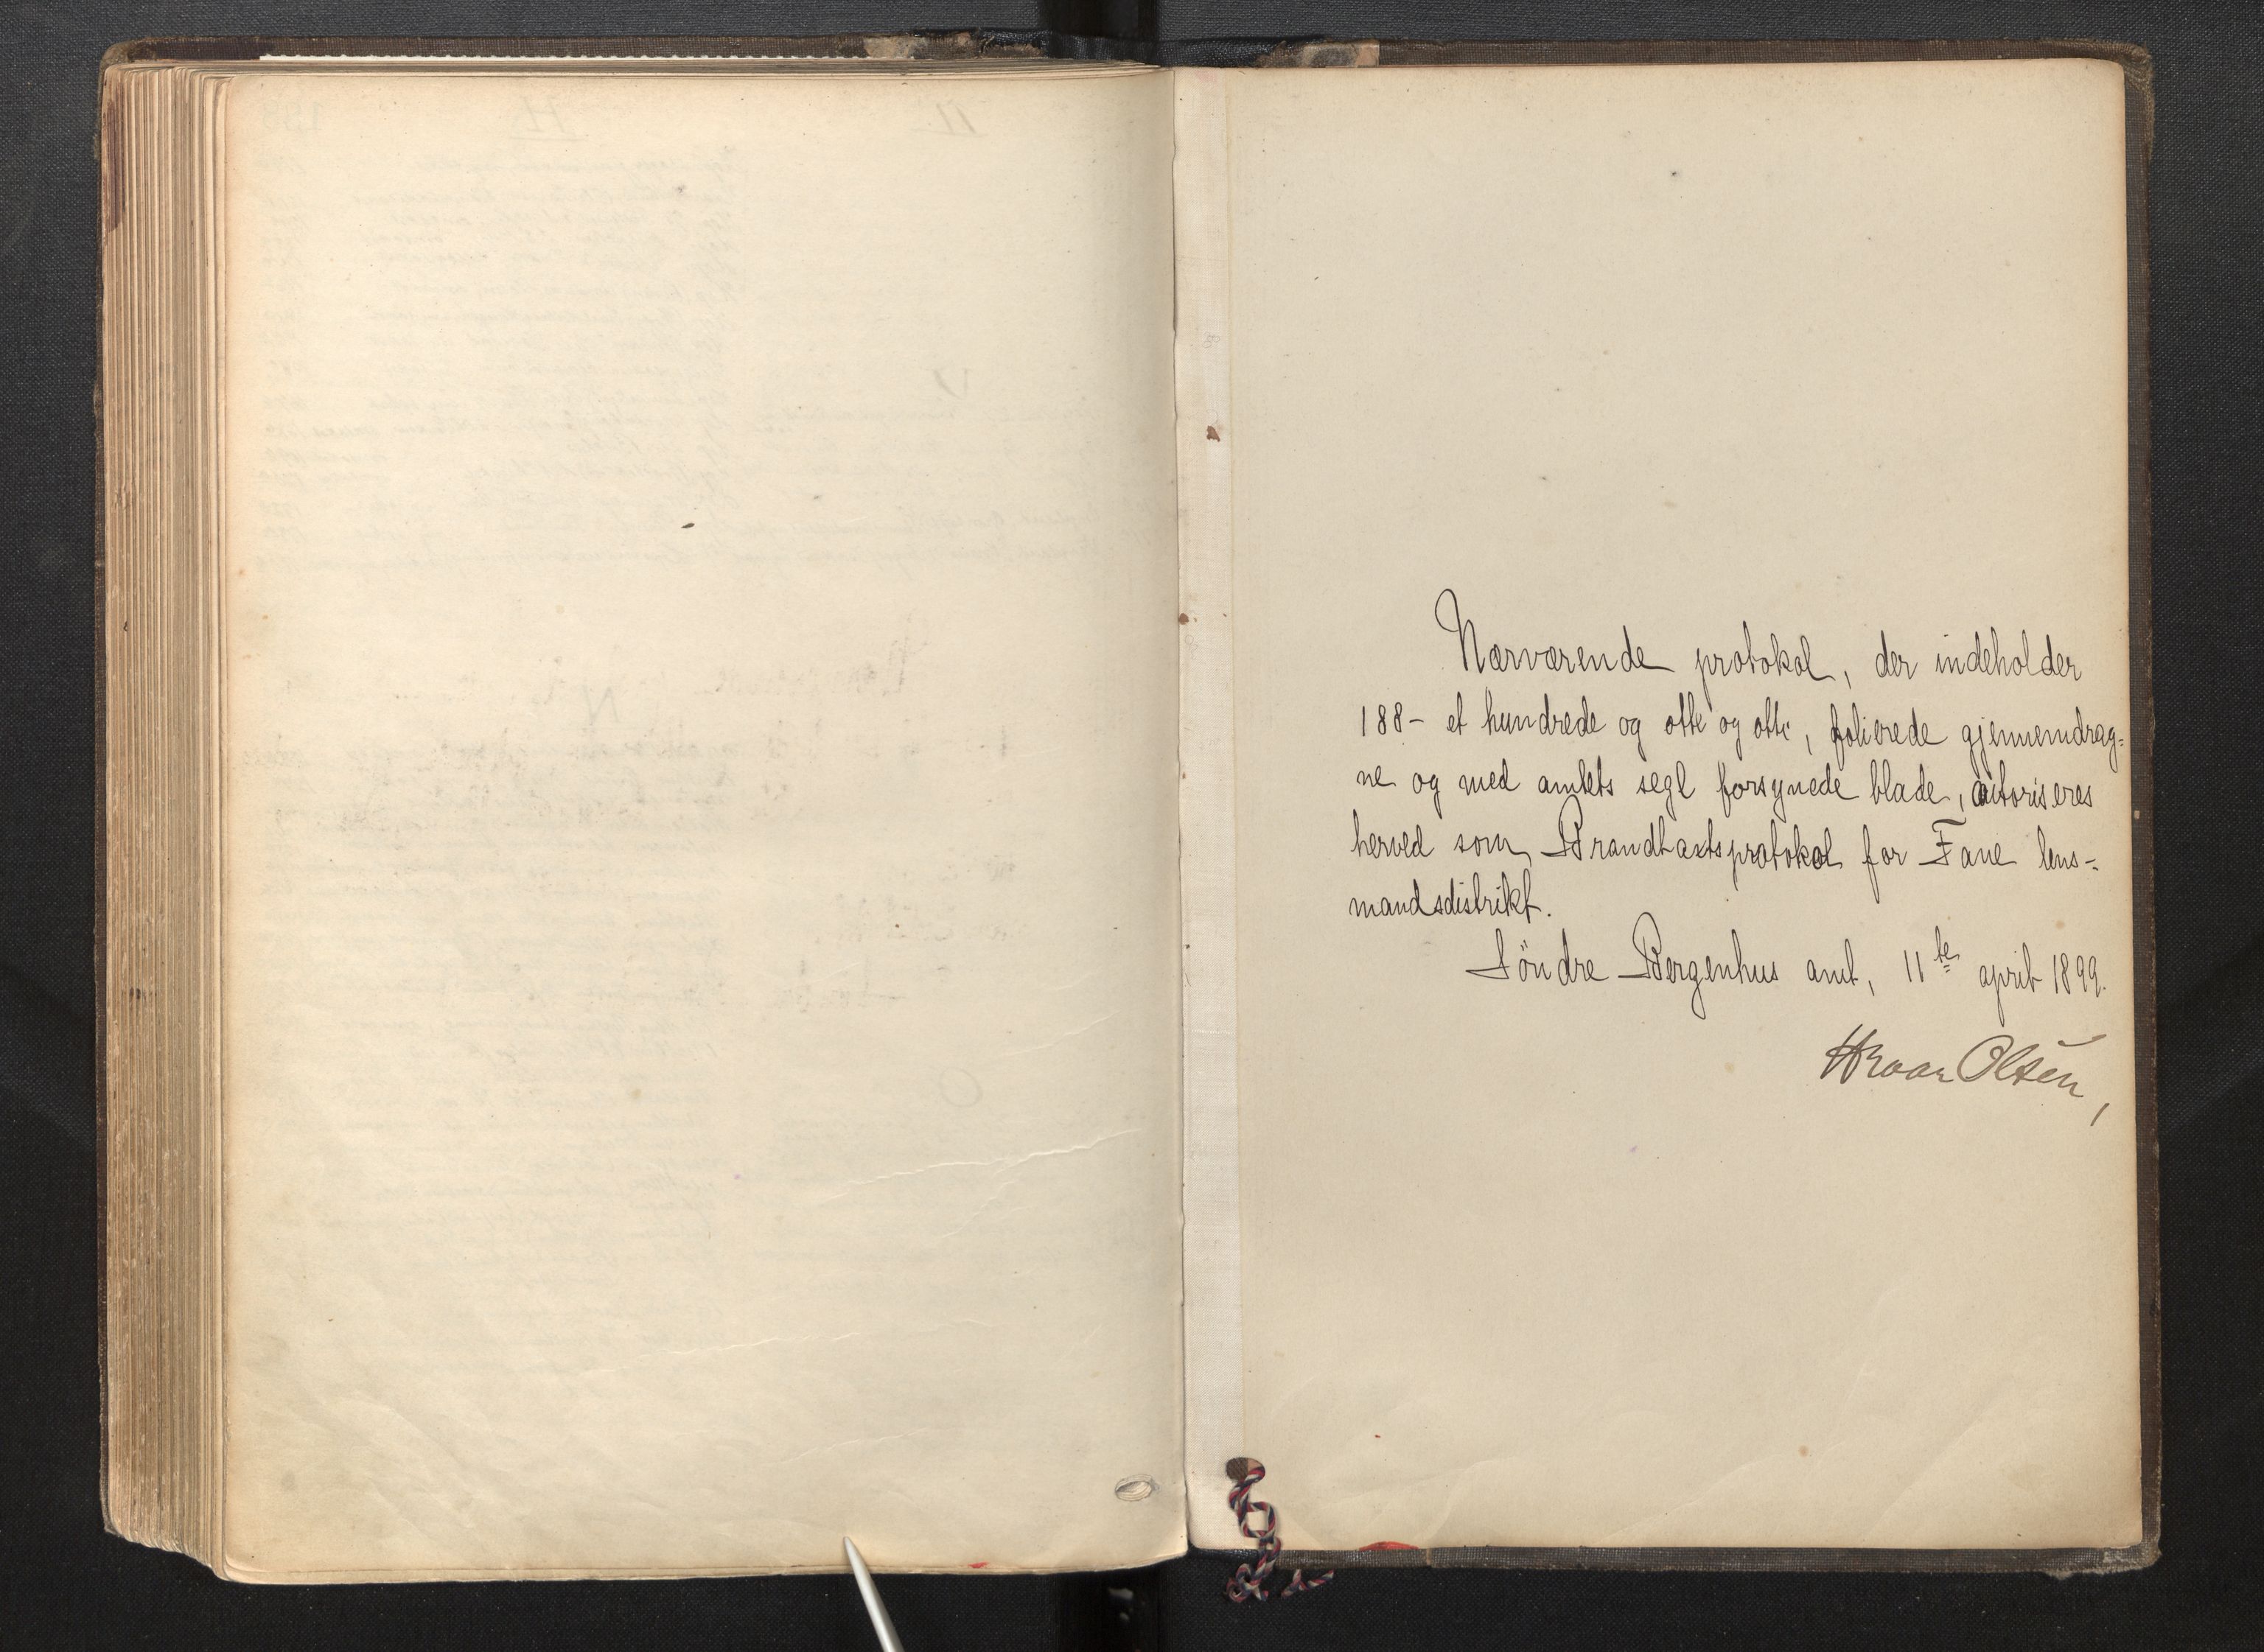 Nærværende protokol, der indeholder
188- et hundrede og otte og otti, folierede gjennemdrag=
ne og med amtets segl forsynede blade, autoriseres
herved som Brandtaxtsprotokol for Fane lens-
mandsdistrikt.
Söndre Bergenhus amt, 11te april 1899.
Hroar Olsen,